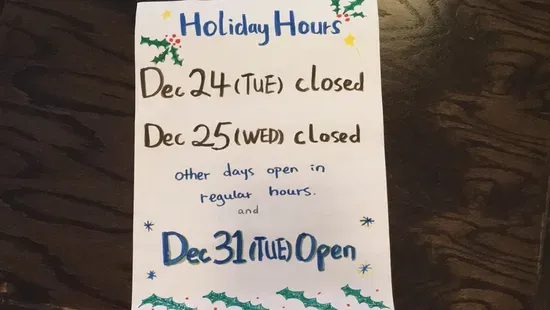 Holiday Hours
Dec 24 (TUE) closed
Dec 25 (WED) closed
other days open in
regular hours.
and
Dec 31 (TUE) Open